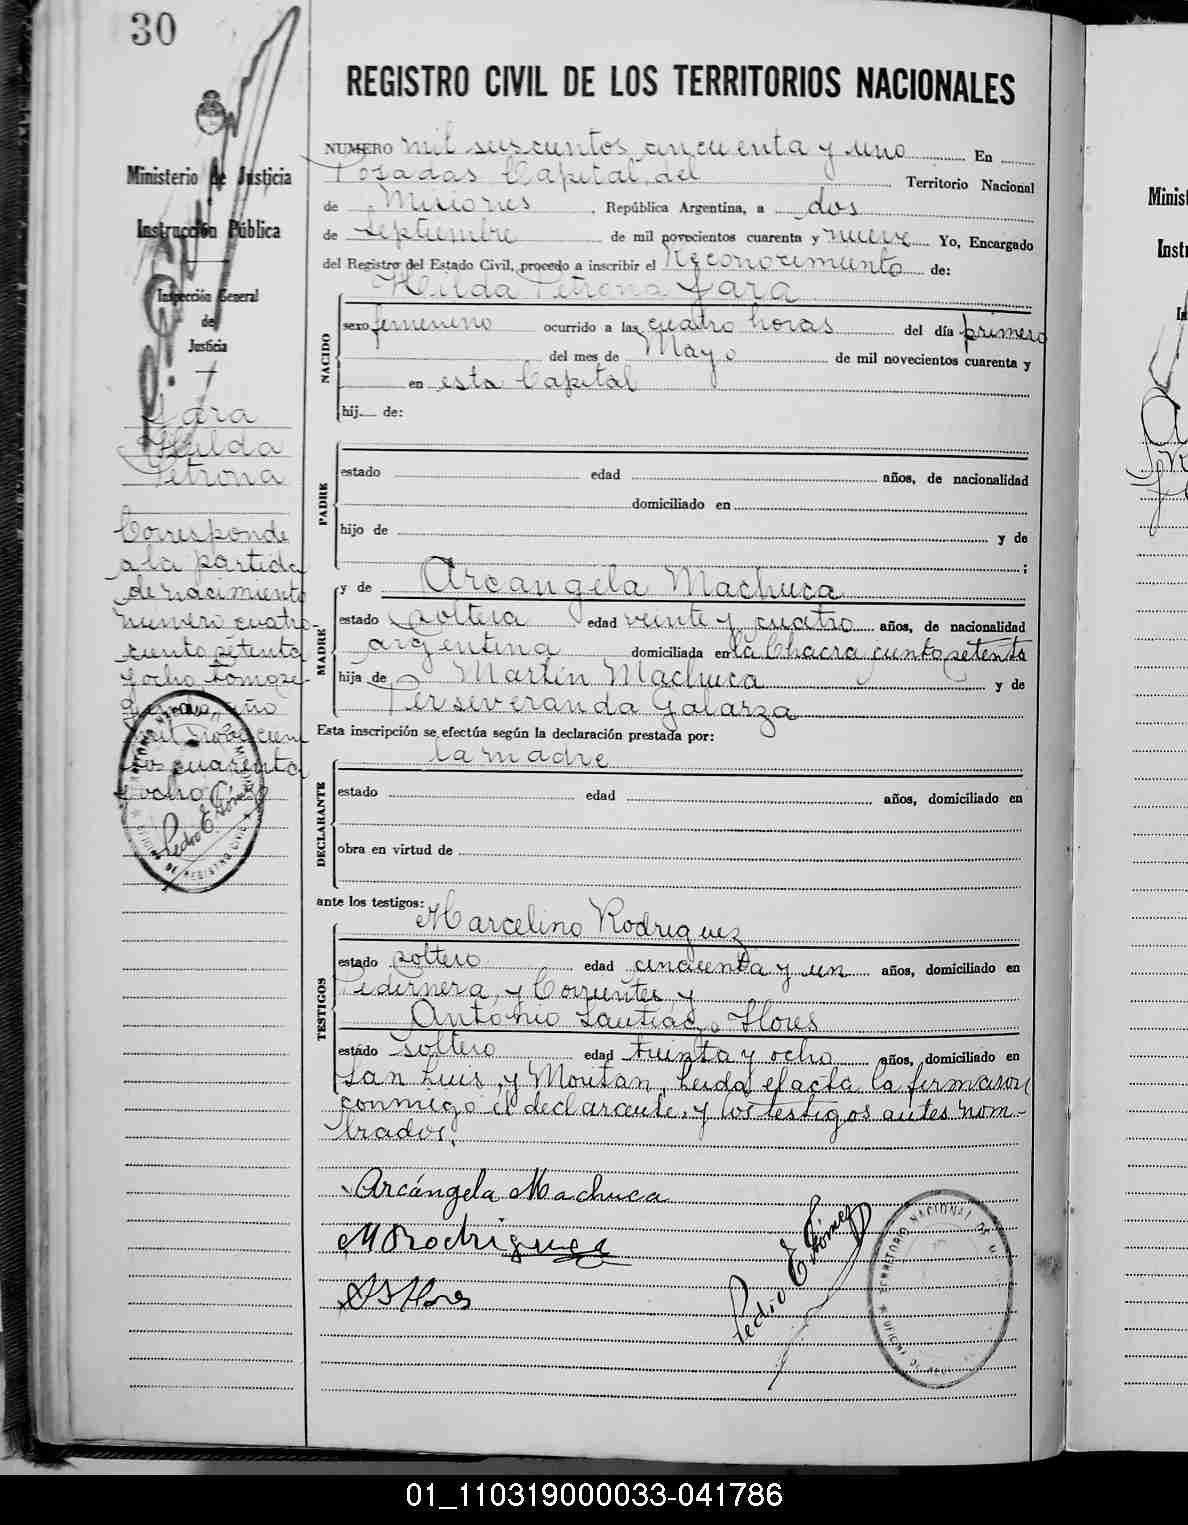 30
REGISTRO CIVIL DE LOS TERRITORIOS NACIONALES
Ministerio de Justicia
Instrucción Pública
Inspección General
de
Justicia
Jara
Hilda
Petrona
Corresponde
a la partida
de nacimiento
numero cuatro
ciento setenta
y ocho, tomo
año
mil
tos cuarenta
y ocho
Pedro E. Gómez
NUMERO mil seiscientos cincuenta y uno En
Posadas Capital del Territorio Nacional
de Misiones, República Argentina, a dos
de septiembre de mil novecientos cuarenta y nueve Yo, Encargado
del Registro del Estado Civil, procedo a inscribir el Reconocimiento de:
Hilda Petrona Jara
NACIDO
sexo femenino ocurrido a las cuatro horas del día primero
del mes de Mayo de mil novecientos cuarenta y
en esta Capital
hij de:
PADRE
estado edad años, de nacionalidad
domiciliado en
hijo de y de
;
y de Arcangela Machuca
MADRE
estado soltera edad veinte y cuatro años, de nacionalidad
argentina domiciliada en la Chacra ciento setenta
hija de Martín Machuca y de
Perseveranda Galarza
Esta inscripción se efectúa según la declaración prestada por:
la madre
DECLARANTE
estado edad años, domiciliado en
obra en virtud de
ante los testigos:
Marcelino Rodriguez
TESTIGOS
estado soltero edad cincuenta y un años, domiciliado en
Pedernera, y Corrientes y
Antonio Santiago Flores
estado soltero edad treinta y ocho años, domiciliado en
San Luis, y Moritan, Leida el acta la firmaron
conmigo el declarante, y los testigos antes nom-
brados.
Arcángela Machuca
M Rodriguez
A S Flores
Pedro E Gómez
TERRITORIO NACIONAL DE M
Minist
Inst
01_110319000033-041786